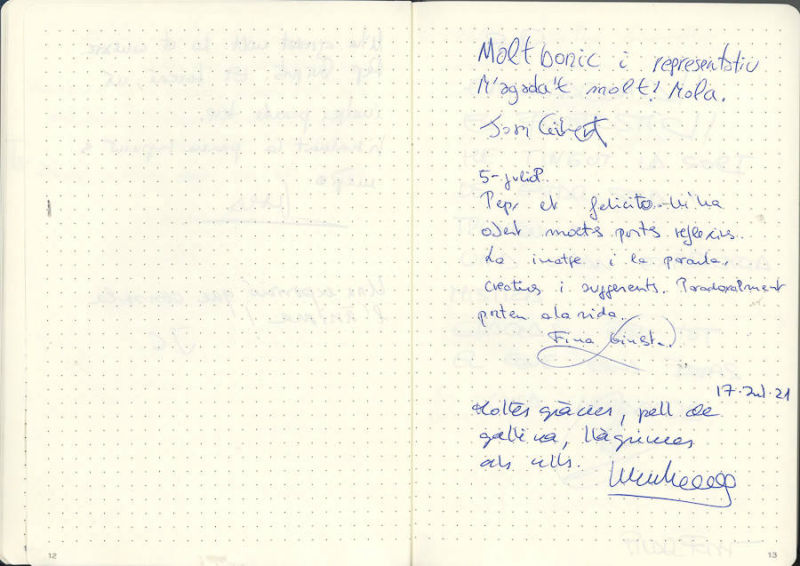 Molt bonic i representatiu
M'agada't molt! Mola.
5-juliol.
Pep, et felicito. M'ha
obert moltes portes reflexius.
La imatge i la paraula,
creatius i suggerents. Paradoxalment
porten a la vida.
Fina
17-Jul-21
Moltes gràcies, pell de
gallina, llàgrimes
als ulls.
12
13